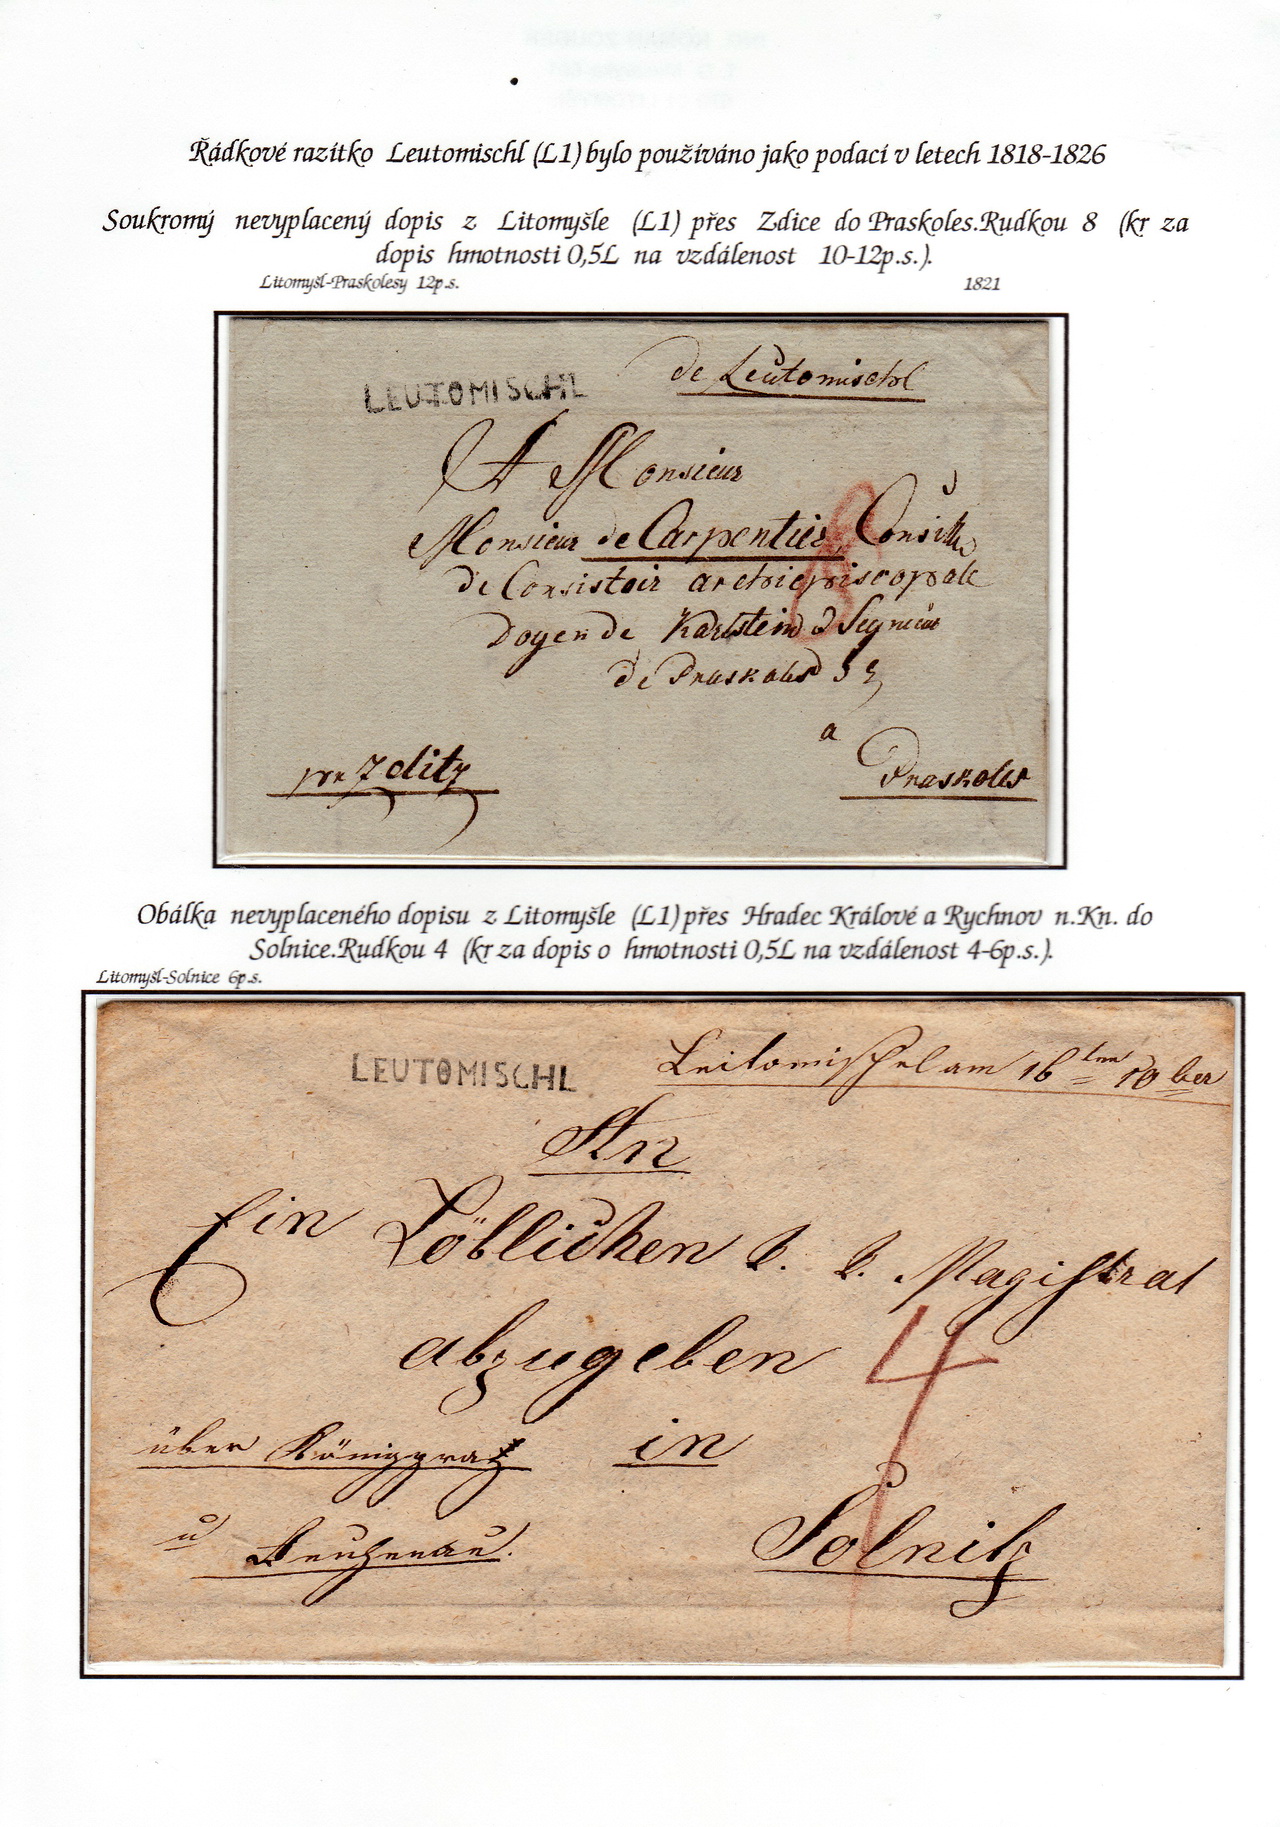 Řádkové razítko Leutomischl (L1) bylo používáno jako podací v letech 1818-1826
Soukromý nevyplacený dopis z Litomyšle (L1) přes Zdice do Praskoles.Rudkou 8 (kr za
dopis hmotnosti 0,5L na vzdálenost 10-12p.s.).
Litomyšl-Praskolesy 12p.s. 1821
LEUTOMISCHL de Leutomischl
A Monsieur
Monsieur de Carpentier,
de Consistoir archiepiscopale
Doyen de Karlstein
de Praskoles
a
par Zditz Praskoles
Obálka nevyplaceného dopisu z Litomyšle (L1) přes Hradec Králové a Rychnov n.Kn. do
Solnice.Rudkou 4 (kr za dopis o hmotnosti 0,5L na vzdálenost 4-6p.s.).
Litomyšl-Solnice 6p.s.
LEUTOMISCHL Leitomischel am 16ten 10ber
An
Ein Löblichen k. k. Magistrat
abzugeben 4
über Königgratz in
u Solnitz